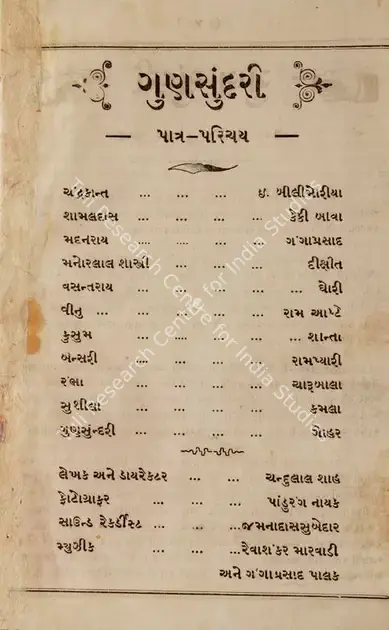 ગુણસુંદરી
— પાત્ર-પરિચય —
ચંદ્રકાન્ત ... ... ... ઇ. બીલીમોરીયા
શામલદાસ ... ... ... કેકી બાવા
મદનરાય .... .... ... ગંગાપ્રસાદ
મનોરલાલ શાસ્ત્રી ... ... દીક્ષીત
વસન્તરાય ... ... ... ઘોરી
વીનુ ... ... ... ... રામ આપ્ટે
કુસુમ ... .... ... ... શાન્તા
બંસરી ... .... ... રામપ્યારી
રંભા ... ... ... ચારૂબાલા
સુશીલા ... ... ... કમલા
ગુણસુંન્દરી ... ... ... ગોહર
લેખક અને ડાયરેક્ટર ... ... ચન્દુલાલ શાહ
ફોટોગ્રાફર ... ... પાંડુરંગ નાયક
સાઉન્ડ રેકર્ડીસ્ટ ... ... ...જમનાદાસસુબેદાર
મ્યુઝીક ... ... ...રેવાશંકર મારવાડી
અને ગંગાપ્રસાદ પાલક
The Research Centre for India Studies